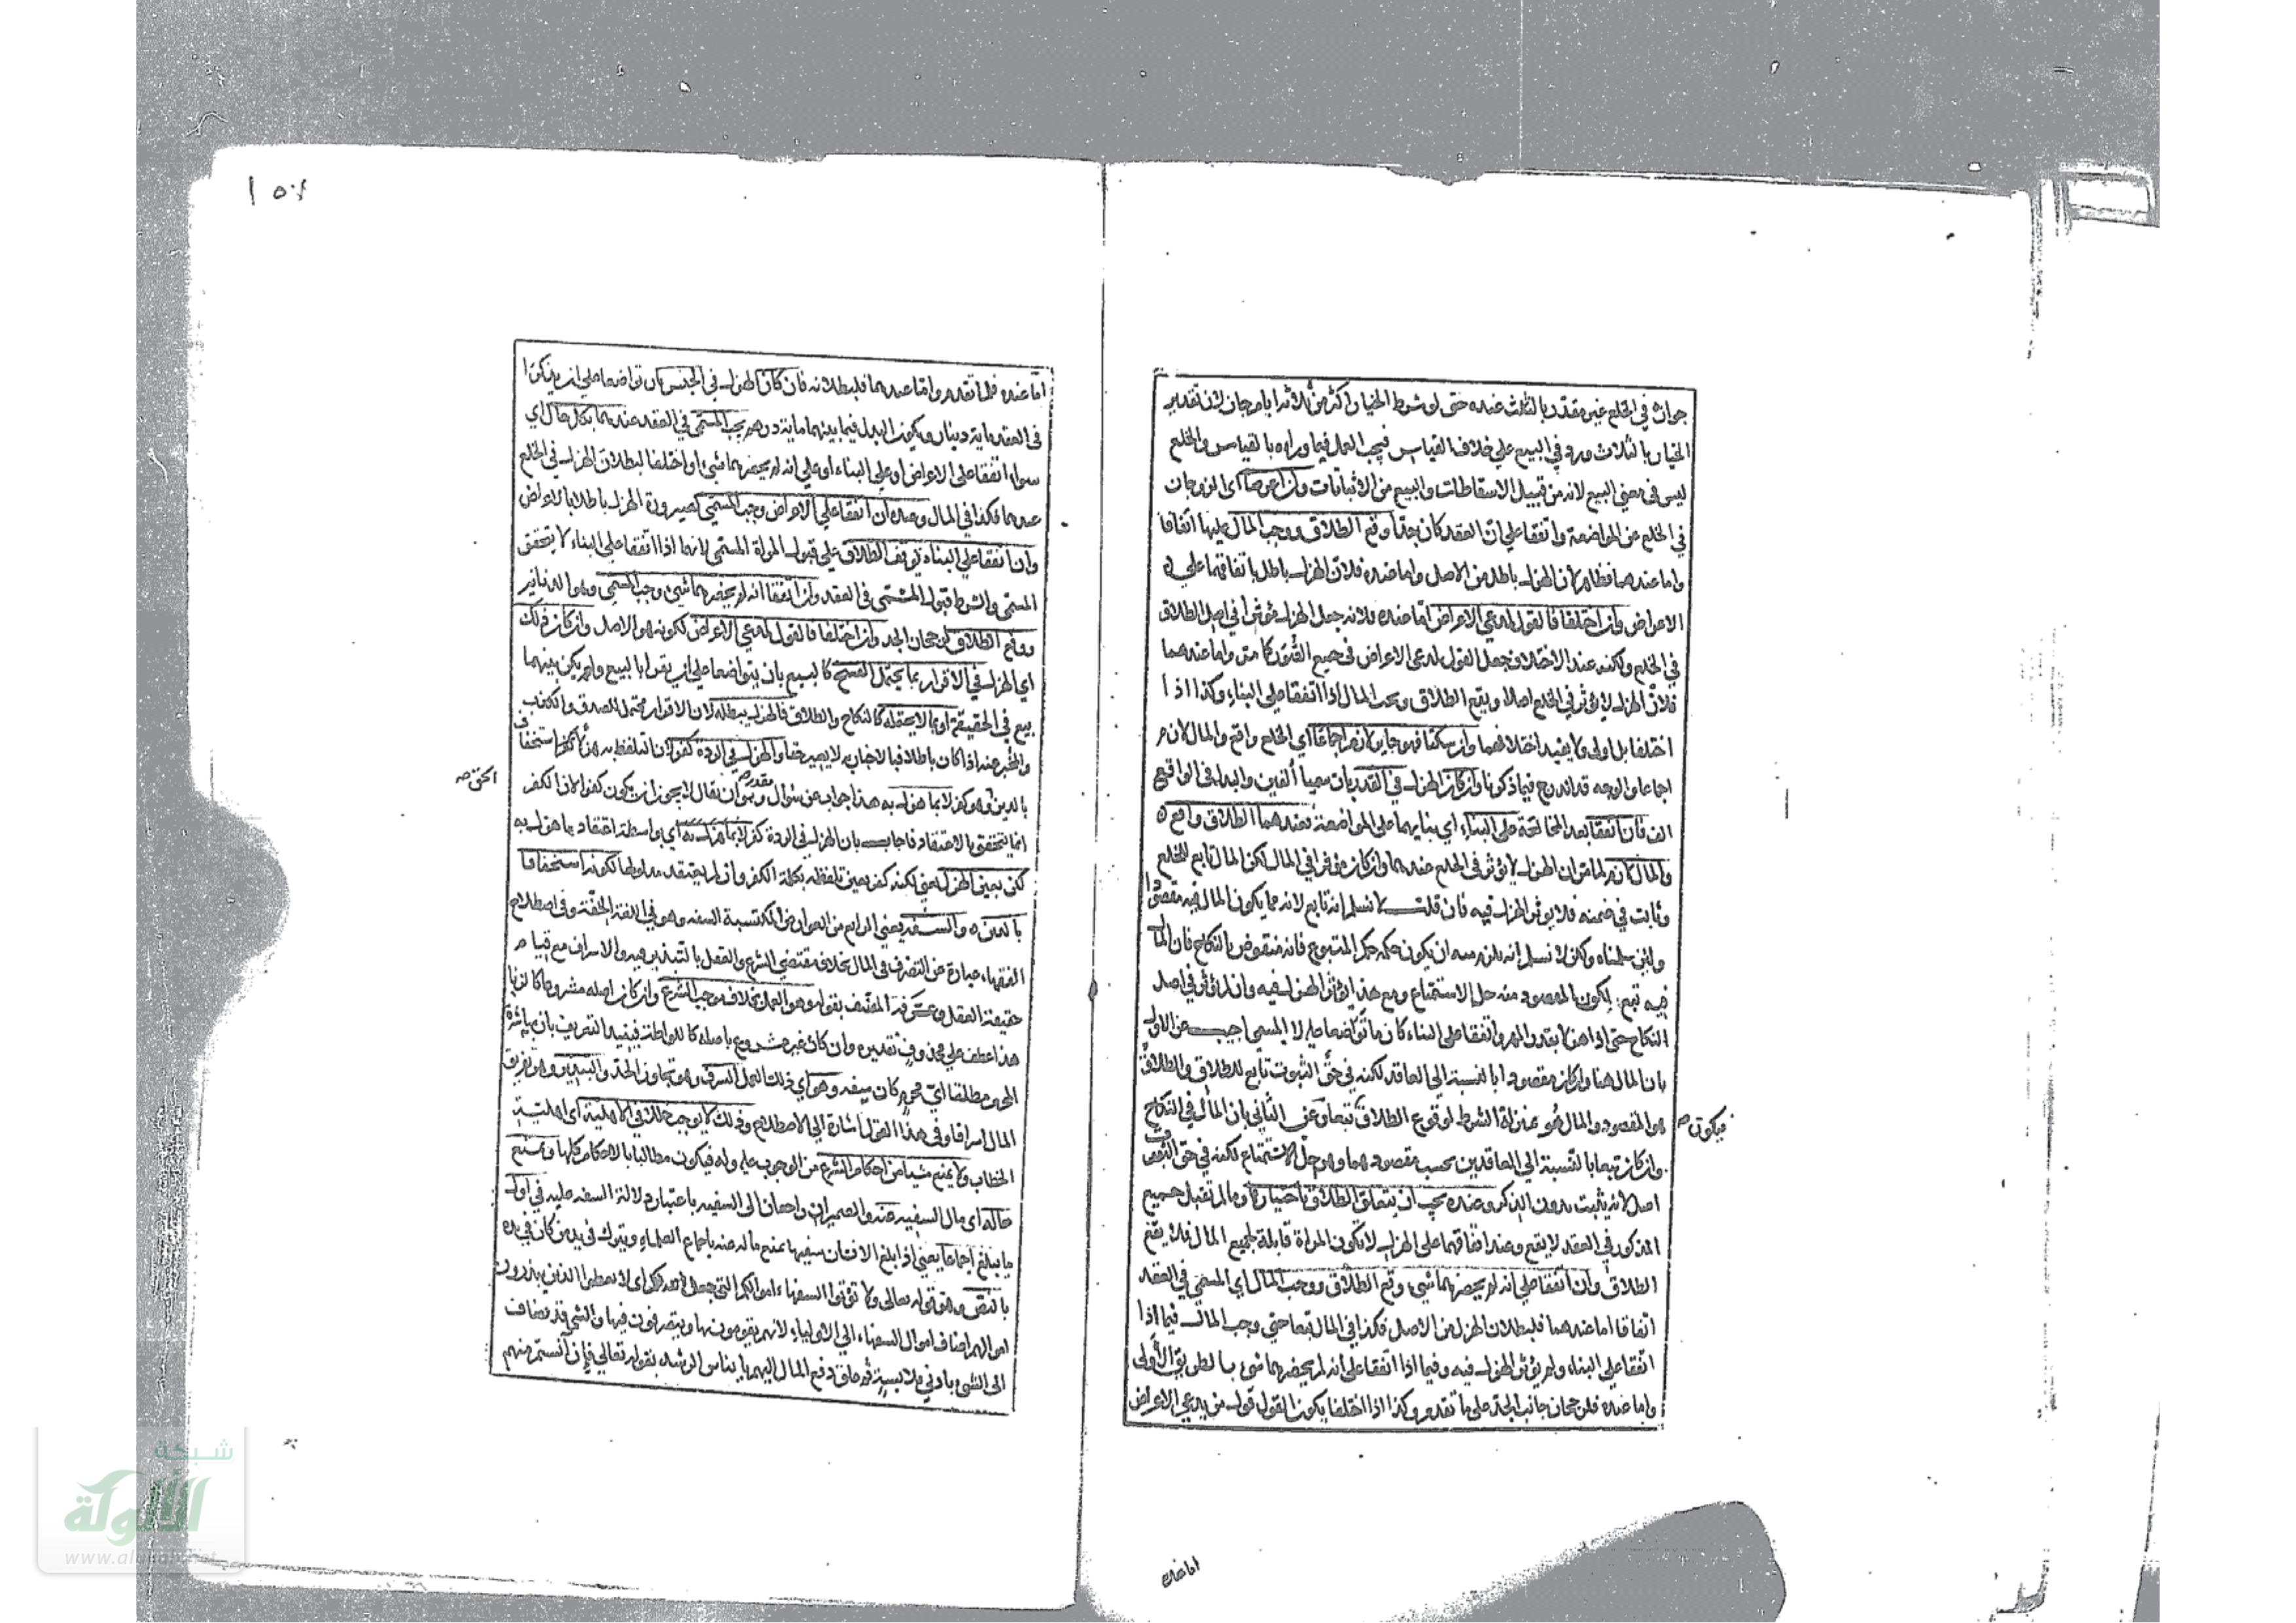 جوازه في الخلع غير مقدر بالثلاث عنده حتى لو شرط الخيار اكثر من ثلاثة ايام جاز لان تقدير
الخيار بالثلاث ورد في البيع على خلاف القياس فيجب العمل فيما وراه بالقياس والخلع
ليس في معنى البيع لانه من قبيل الاسقاطات والبيع من الاثباتات وان اعرضا اى الزوجان
في الخلع عن المواضعة واتفقا على ان العقد كان جدا وقع الطلاق ووجب المال عليها اتفاقا
واما عندهما فظاهر لان الهزل باطل من الاصل واما عنده فلان الهزل باطل باتفاقهما على
الاعراض وان اختلفا فالقول لمدعي الاعراض اما عنده فلانه جعل الهزل مؤثرا في اصل الطلاق
في الخلع ولكنه عند الاختلاف جعل القول لمدعى الاعراض في جميع الصور كما مر واما عندهما
فلان الهزل لا يؤثر في الخلع اصلا ويقع الطلاق ويجب المال اذا اتفقا على البناء وكذا اذا
اختلفا بل اولى ولا يفيد اختلافهما وان سكتا فهو جايز لازم اجماعا اي الخلع واقع والمال لازم
اجماعا والوجه قد اندرج فيما ذكرنا وان كان الهزل في القدر بان سميا ألفين والبدل في الواقع
الف فان اتفقا بعد المخالعة على البناء اي بنايهما على المواضعة فعندهما الطلاق واقع
والمال لازم لما مر ان الهزل لا يؤثر في الخلع عندهما وان كان مؤثرا في المال لكن المال تابع للخلع
وثابت في ضمنه فلا يؤثر الهزل فيه فان قلت لا نسلم انه تابع لانه مما يكون المال فيه مقصودا
ولئن سلمناه ولكن لا نسلم انه يلزم منه ان يكون حكمه حكم المتبوع فانه منقوض بالنكاح فان المال
فيه تبع لكون المقصود منه حل الاستمتاع ومع هذا يؤثر الهزل فيه وان لم يؤثر في اصل
النكاح حتى اذا هزلا بقدر المهر واتفقا على البناء كان ما تواضعا عليه لا المسمى اجيب عن الاول
بان المال هنا وان كان مقصودا بالنسبة الى العاقد لكنه في حق الثبوت تابع للطلاق والطلاق
هو المقصود والمال هو بمنزلة الشرط لوقوع الطلاق تبعا وعن الثاني بان المال في النكاح
فيكون صح
وان كان تبعا بالنسبة الى العاقدين بحسب مقصودهما وهو حل الاستمتاع لكنه في حق الثبوت
اصل لانه يثبت بدون الذكر وعنده يجب ان يتعلق الطلاق باختيارها وما لم تقبل جميع
المذكور في العقد لا يقع وعند اتفاقهما على الهزل لا تكون المراة قابلة لجميع المال فلا يقع
الطلاق وان اتفقا على انه لم يحضرهما شيء وقع الطلاق ووجب المال اي المسمى في العقد
اتفاقا اما عندهما فلبطلان الهزل من الاصل فكذا في المال تبعا حتى وجب المال فيما اذا
اتفقا على البناء ولم يؤثر الهزل فيه وفيما اذا اتفقا على انه لم يحضرهما شئ بالطريق الأولى
واما عنده فلرجحان جانب الجد على ما تقدم وكذا اذا اختلفا يكون القول قول من يدعي الاعراض
اما عنده
اما عنده فلما تقدم واما عندهما فلبطلانه فان كان الهزل في الجنس بان تواضعا على ان يذكرا
في العقد ماية دينار ويكون البدل فيما بينهما ماية درهم يجب المسمى في العقد عندهما بكل حال اي
سواء اتفقا على الاعراض او على البناء او على انه لم يحضرهما شيء او اختلفا لبطلان الهزل في الخلع
عندهما فكذا في المال وعنده ان اتفقا على الاعراض وجب المسمى لصيرورة الهزل باطلا بالاعراض
وان اتفقا على البناء توقف الطلاق على قبول المراة المسمى لانهما اذا اتفقا على البناء لا يتحقق
المسمى والشرط قبول المسمى في العقد وان اتفقا انه لم يحضرهما شيء وجب المسمى وهو الدنانير
ووقع الطلاق لرجحان الجد وان اختلفا فالقول لمدعي الاعراض لكونه هو الاصل وان كان ذلك
اي الهزل في الاقرار بما يحتمل الفسخ كالبيع بان يتواضعا على ان يقرا بالبيع ولم يكن بينهما
بيع في الحقيقة او بما لا يحتمله كالنكاح والطلاق فالهزل يبطله لان الاقرار محتمل للصدق والكذب
والمخبر عنه اذا كان باطلا فبالاخبار به لا يصير حقا والهزل في الردة كفر لان التلفظ به هزلا كفر استخفاف
بالدين وهو كفر لا بما هزل به هذا جواب عن سؤال مقدر وهو ان يقال لا يجوز ان يكون كفرا لان الكفر
انما يتحقق بالاعتقاد فاجاب بان الهزل في الردة كفر لا بما هزل به اي بواسطة اعتقاد ما هزل به
لكن بعين الهزل يعني لكنه كفر بعين تلفظه بكلمة الكفر وان لم يعتقد مدلولها لكونه استخفافا
بالدين والسفه يعني الرابع من العوارض المكتسبة السفه وهو في اللغة الخفة وفي اصطلاح
الفقهاء عبارة عن التصرف في المال بخلاف مقتضى الشرع والعقل بالتبذير فيه والاسراف مع قيام
حقيقة العقل وعرفه المصنف بقوله وهو العمل بخلاف موجب الشرع وان كان اصله مشروعا كالزنا
هذا عطف على محذوف تقديره وان كان غير مشروع باصله كاللواطة فيفيد التعريف بان مباشرة
المحرم مطلقا اي محرم كان سفه وهو اي ذلك العمل السرف وهو تجاوز الحد والتبذير وهو تفريق
المال اسرافا وفي هذا القول اشارة الى الاصطلاح وذلك لا يوجب خللا في الاهلية اى اهلية
الخطاب ولا يمنع شيئا من احكام الشرع من الوجوب عليه وله فيكون مطالبا بالاحكام كلها ويمنع
ماله اى مال السفيه عنه والضميران راجعان الى السفيه باعتبار دلالة السفه عليه في اول
ما يبلغ اجماعا يعني اذا بلغ الانسان سفيها يمنع ماله عنه باجماع العلماء ويترك في يد من كان في يده
بالنص وهو قوله تعالى ولا تؤتوا السفهاء اموالكم التي جعل الله لكم اى لا تعطوا الذين يبذرون
اموالهم اضاف اموال السفهاء الى الاولياء لانهم يقومون بها ويتصرفون فيها والشئ قد يضاف
الى الشيء بادنى ملابسة ثم علق دفع المال اليهم بايناس الرشد بقوله تعالى فإن آنستم منهم
شبكة
الألوكة
www.alukah.net